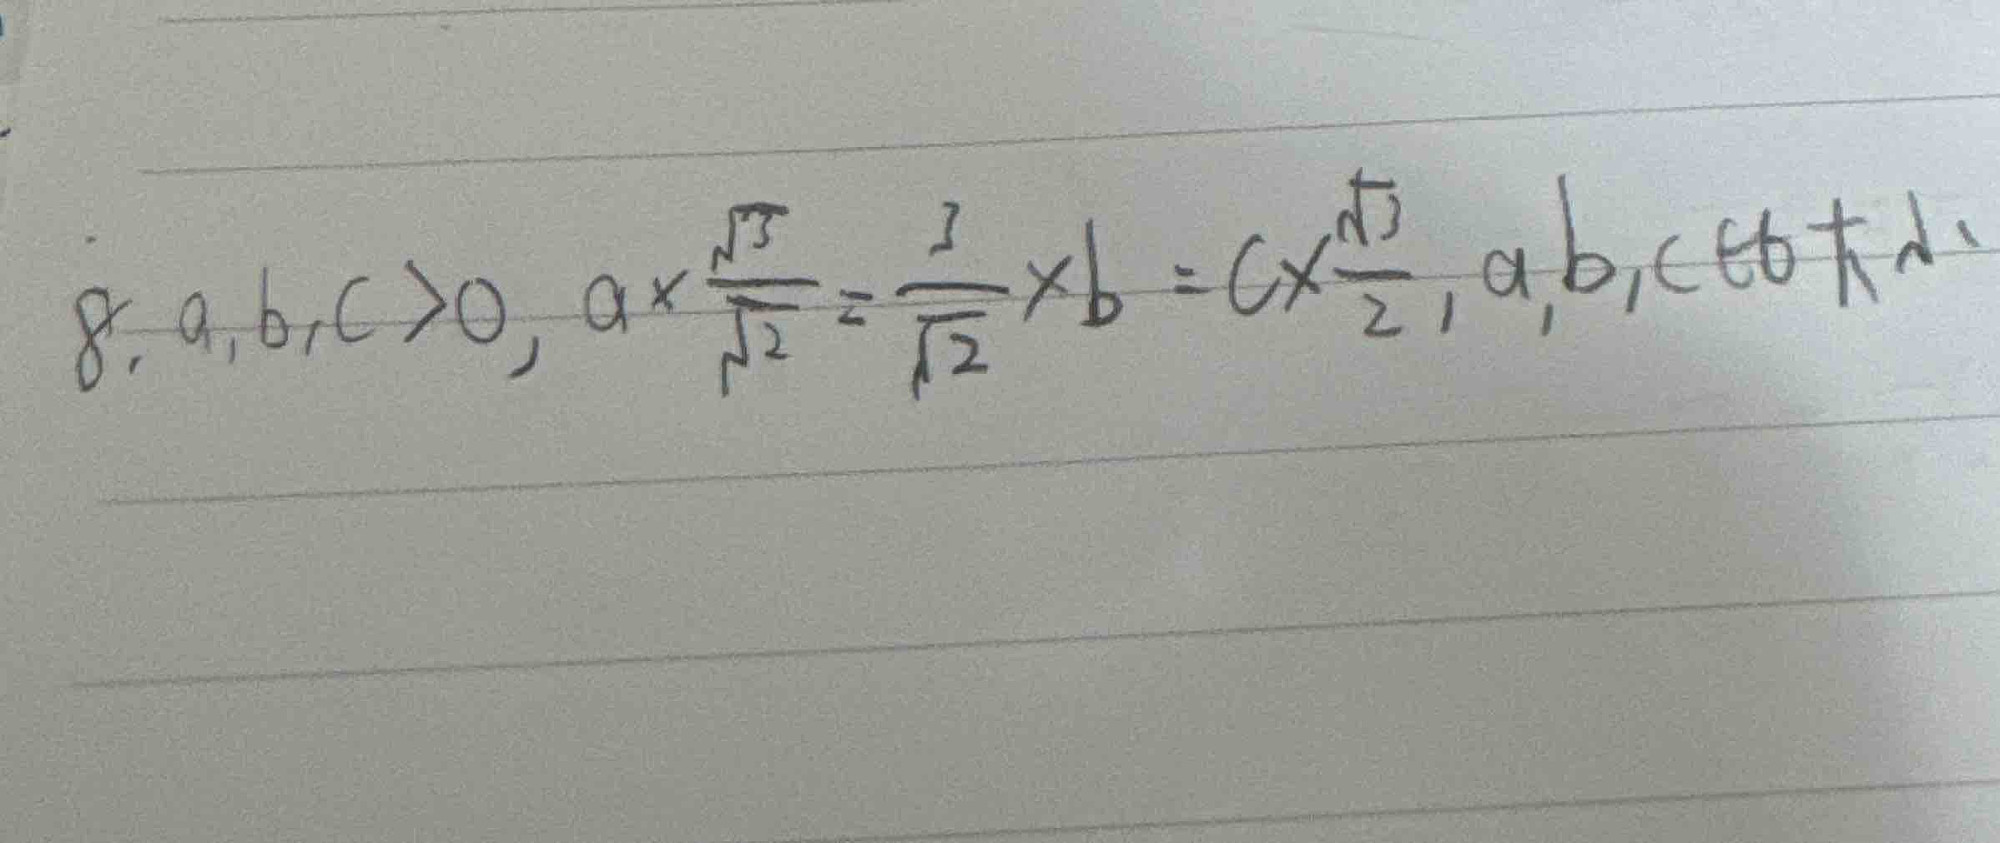 8. a,b,c>0, a×√3/√2=3/√2×b=c×√3/2, a,b,c比大小